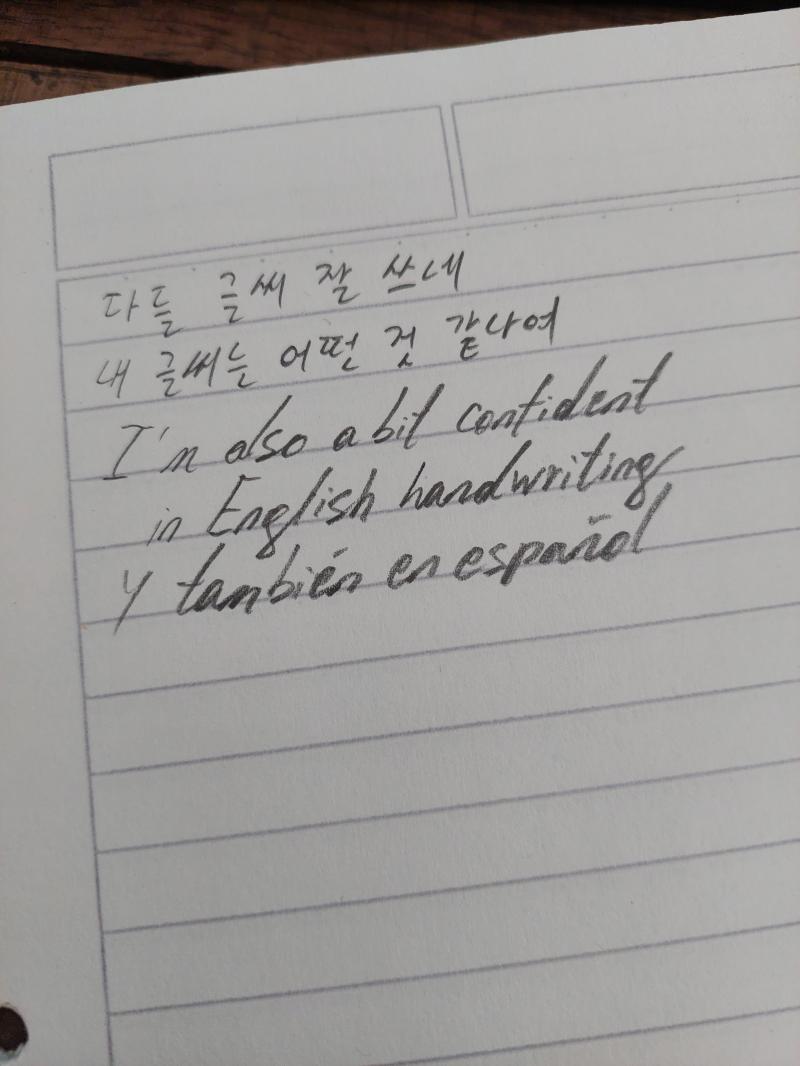 다들 글씨 잘 쓰네
내 글씨는 어떤 것 같나여
I'm also a bit confident
in English handwriting
Y también en español